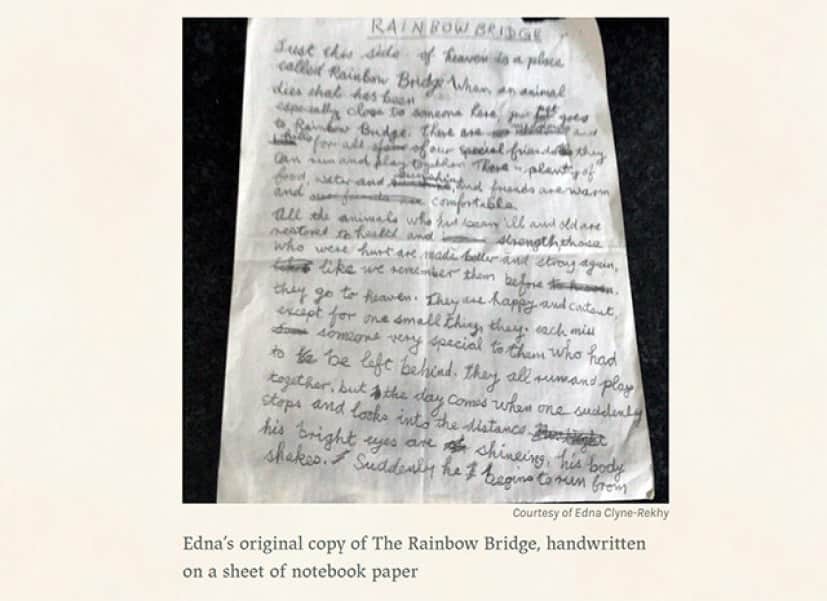 RAINBOW BRIDGE
Just this side of heaven is a place
called Rainbow Bridge. When an animal
dies that has been
especially close to someone here, your pet goes
to Rainbow Bridge. There are and
hills for all of our special friends they
can run and play together. There is plenty of
food, water and sunshine, and friends are warm
and our friends are comfortable.
All the animals who had been ill and old are
restored to health and strength, those
who were hurt are made better and strong again,
like we remember them before
they go to heaven. They are happy and content,
except for one small thing, they each miss
someone very special to them who had
to be left behind. They all run and play
together, but the day comes when one suddenly
stops and looks into the distance.
his bright eyes are shineing, his body
shakes. Suddenly he begins to run from
Courtesy of Edna Clyne-Rekhy
Edna's original copy of The Rainbow Bridge, handwritten
on a sheet of notebook paper